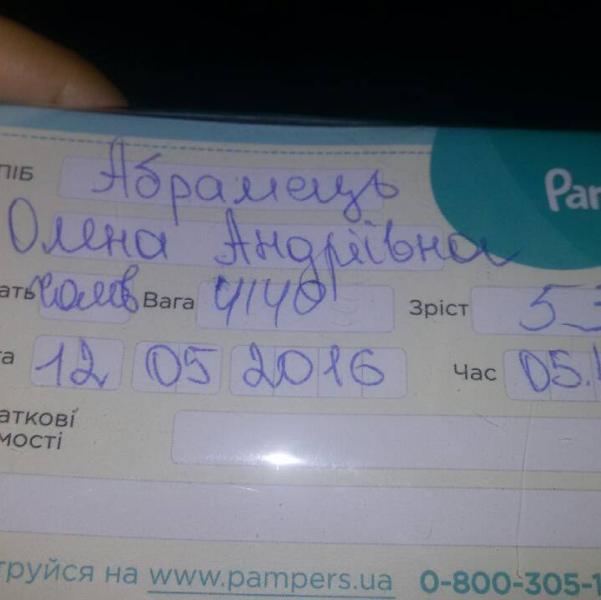 ПІБ Абрамець
Pam
Олена Андріївна
ать чолов Вага 4140 Зріст 53
та 12 05 2016 Час 05.
аткові
мості
труйся на www.pampers.ua 0-800-305-1